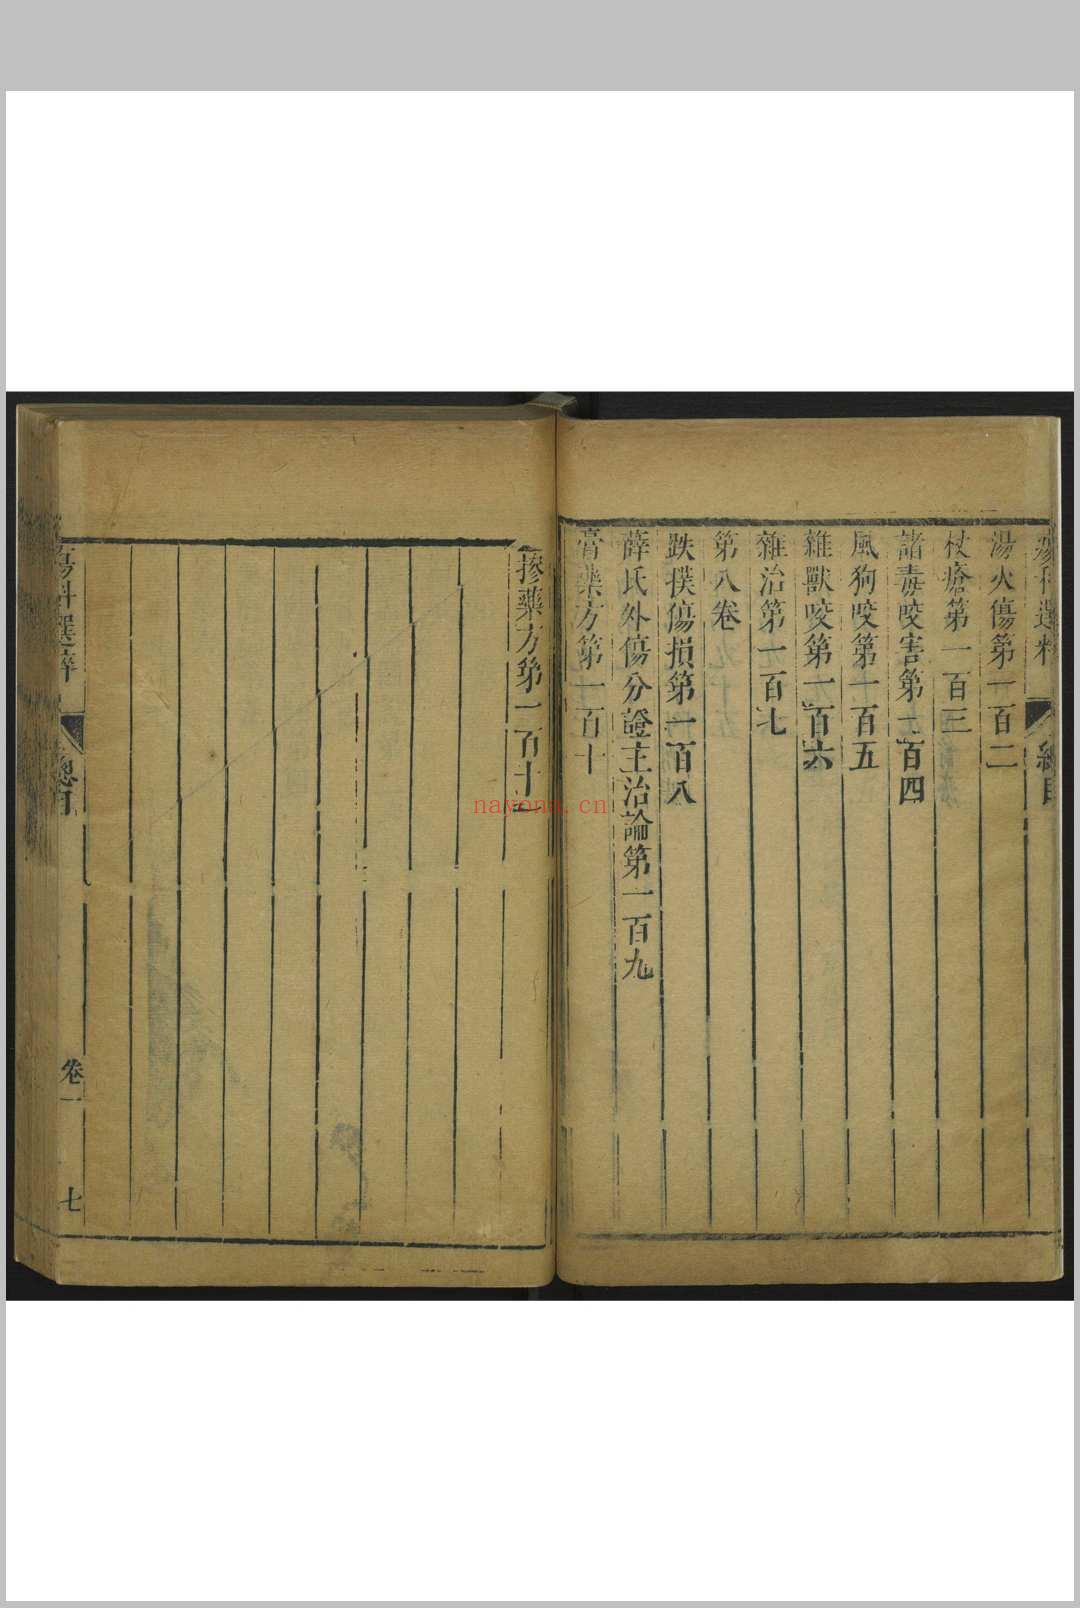 湯火傷第一百二
杖瘡第一百三
諸毒咬害第一百四
風狗咬第一百五
雜獸咬第一百六
雜治第一百七
第八卷
跌撲傷損第一百八
薛氏外傷分證主治論第一百九
膏藥方第一百十
摻藥方第一百十一
總目
卷一
七
nayona.cn